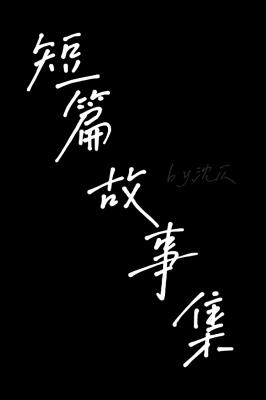 短篇故事集
by沈仄